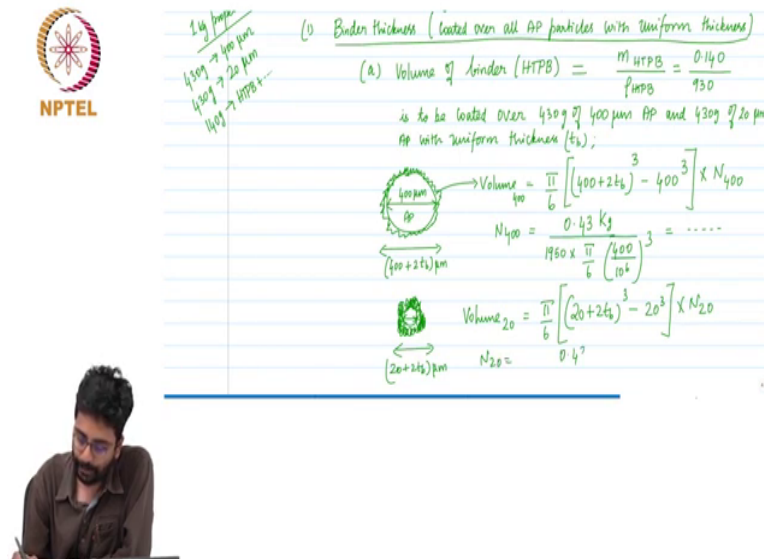 NPTEL
1 kg
430g → 400 μm
430g → 20 μm
140g → HTPB+...
(1) Binder thickness (Coated over all AP particles with uniform thickness)
(a) Volume of binder (HTPB) = m HTPB / ρHTPB = 0.140 / 930
is to be coated over 430g of 400 μm AP and 430g of 20 μm
AP with uniform thickness (tb);
400μm
AP
(400+2tb) μm
Volume 400 = π/6 [(400+2tb)³ − 400³] × N400
N400 = 0.43 Kg / 1950 × π/6 (400/10⁶)³ = .....
(20+2tb) μm
Volume 20 = π/6 [(20+2tb)³ − 20³] × N20
N20 = 0.4